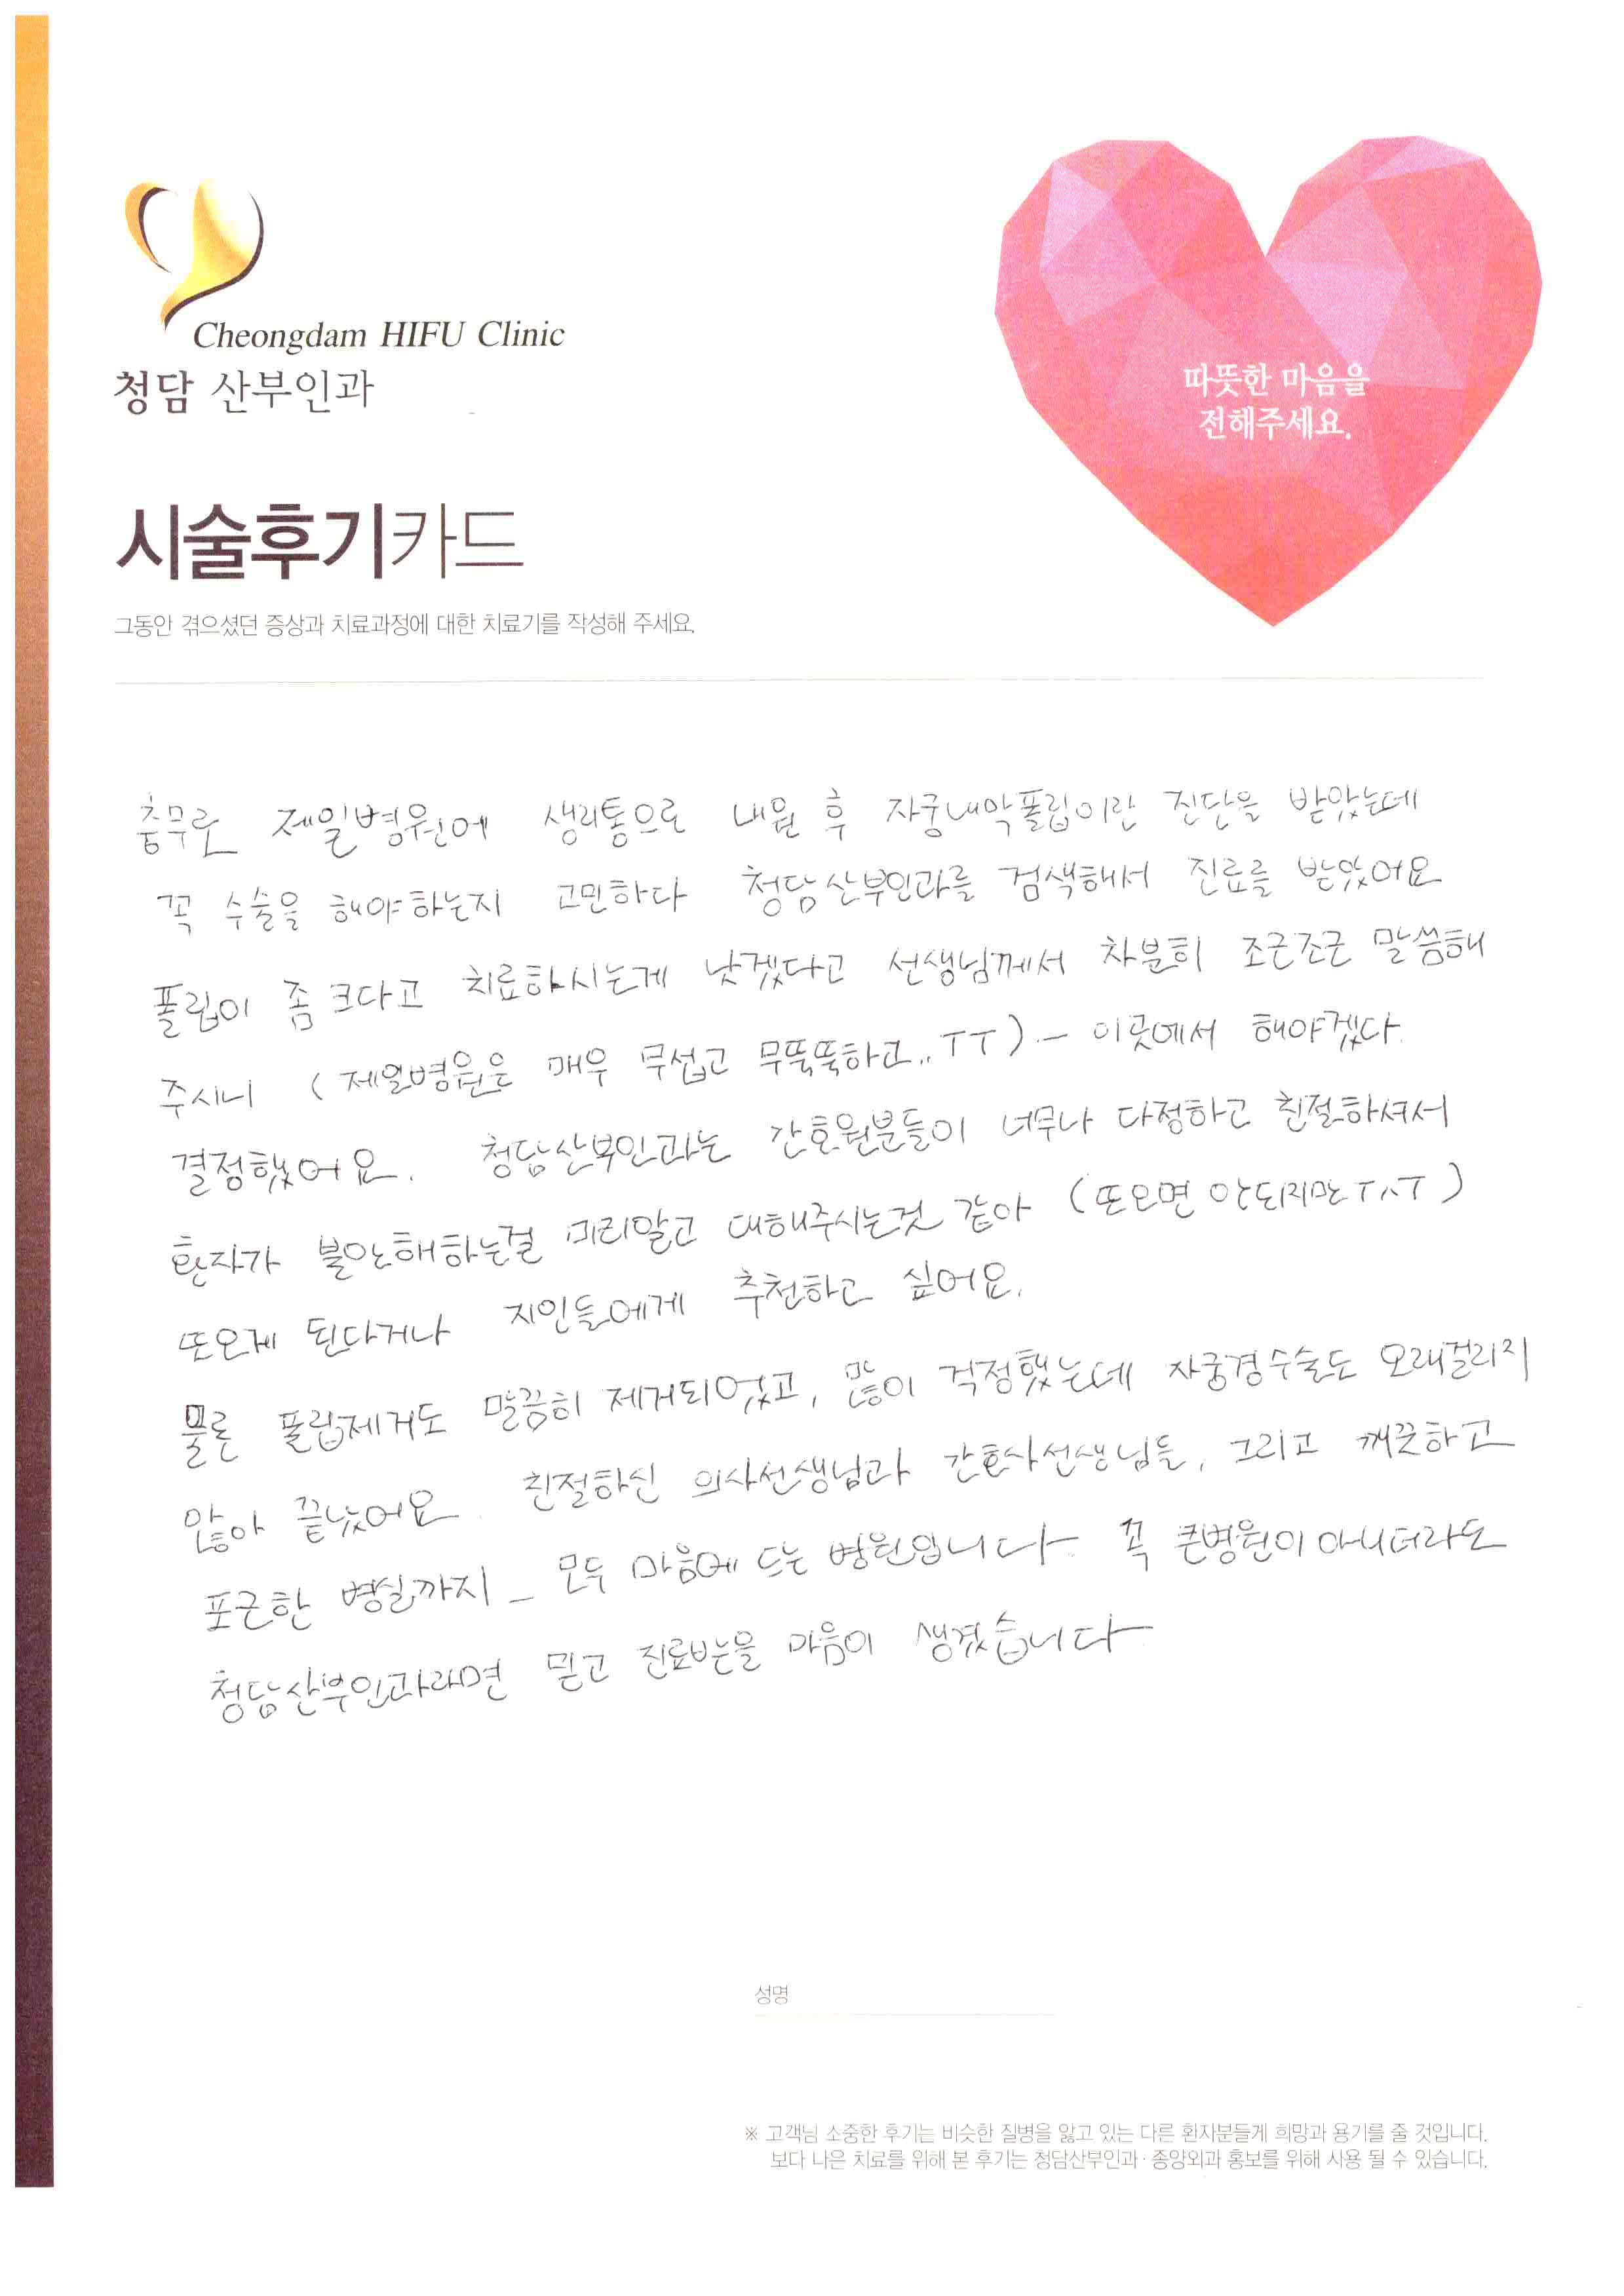 Cheongdam HIFU Clinic
청담 산부인과
따뜻한 마음을
전해주세요.
시술후기카드
그동안 겪으셨던 증상과 치료과정에 대한 치료기를 작성해 주세요.
충무로 제일병원에 생리통으로 내원 후 자궁내막폴립이란 진단을 받았는데
꼭 수술을 해야하는지 고민하다 청담산부인과를 검색해서 진료를 받았어요
폴립이 좀 크다고 치료하시는게 낫겠다고 선생님께서 차분히 조근조근 말씀해
주시니 (제일병원은 매우 무섭고 무뚝뚝하고.. TT) - 이곳에서 해야겠다.
결정했어요. 청담산부인과는 간호원분들이 너무나 다정하고 친절하셔서
환자가 불안해하는걸 미리알고 대해주시는것 같아 (또오면 안되지만 T^T)
또오게 된다거나 지인들에게 추천하고 싶어요.
물론 폴립제거도 말끔히 제거되었고, 많이 걱정했는데 자궁경수술도 오래걸리지
않아 끝났어요. 친절하신 의사선생님과 간호사선생님들, 그리고 깨끗하고
포근한 병실까지 _ 모두 마음에 드는 병원입니다. 꼭 큰병원이 아니더라도
청담산부인과라면 믿고 진료받을 마음이 생겼습니다
성명
※ 고객님 소중한 후기는 비슷한 질병을 앓고 있는 다른 환자분들게 희망과 용기를 줄 것입니다.
보다 나은 치료를 위해 본 후기는 청담산부인과·종양외과 홍보를 위해 사용 될 수 있습니다.